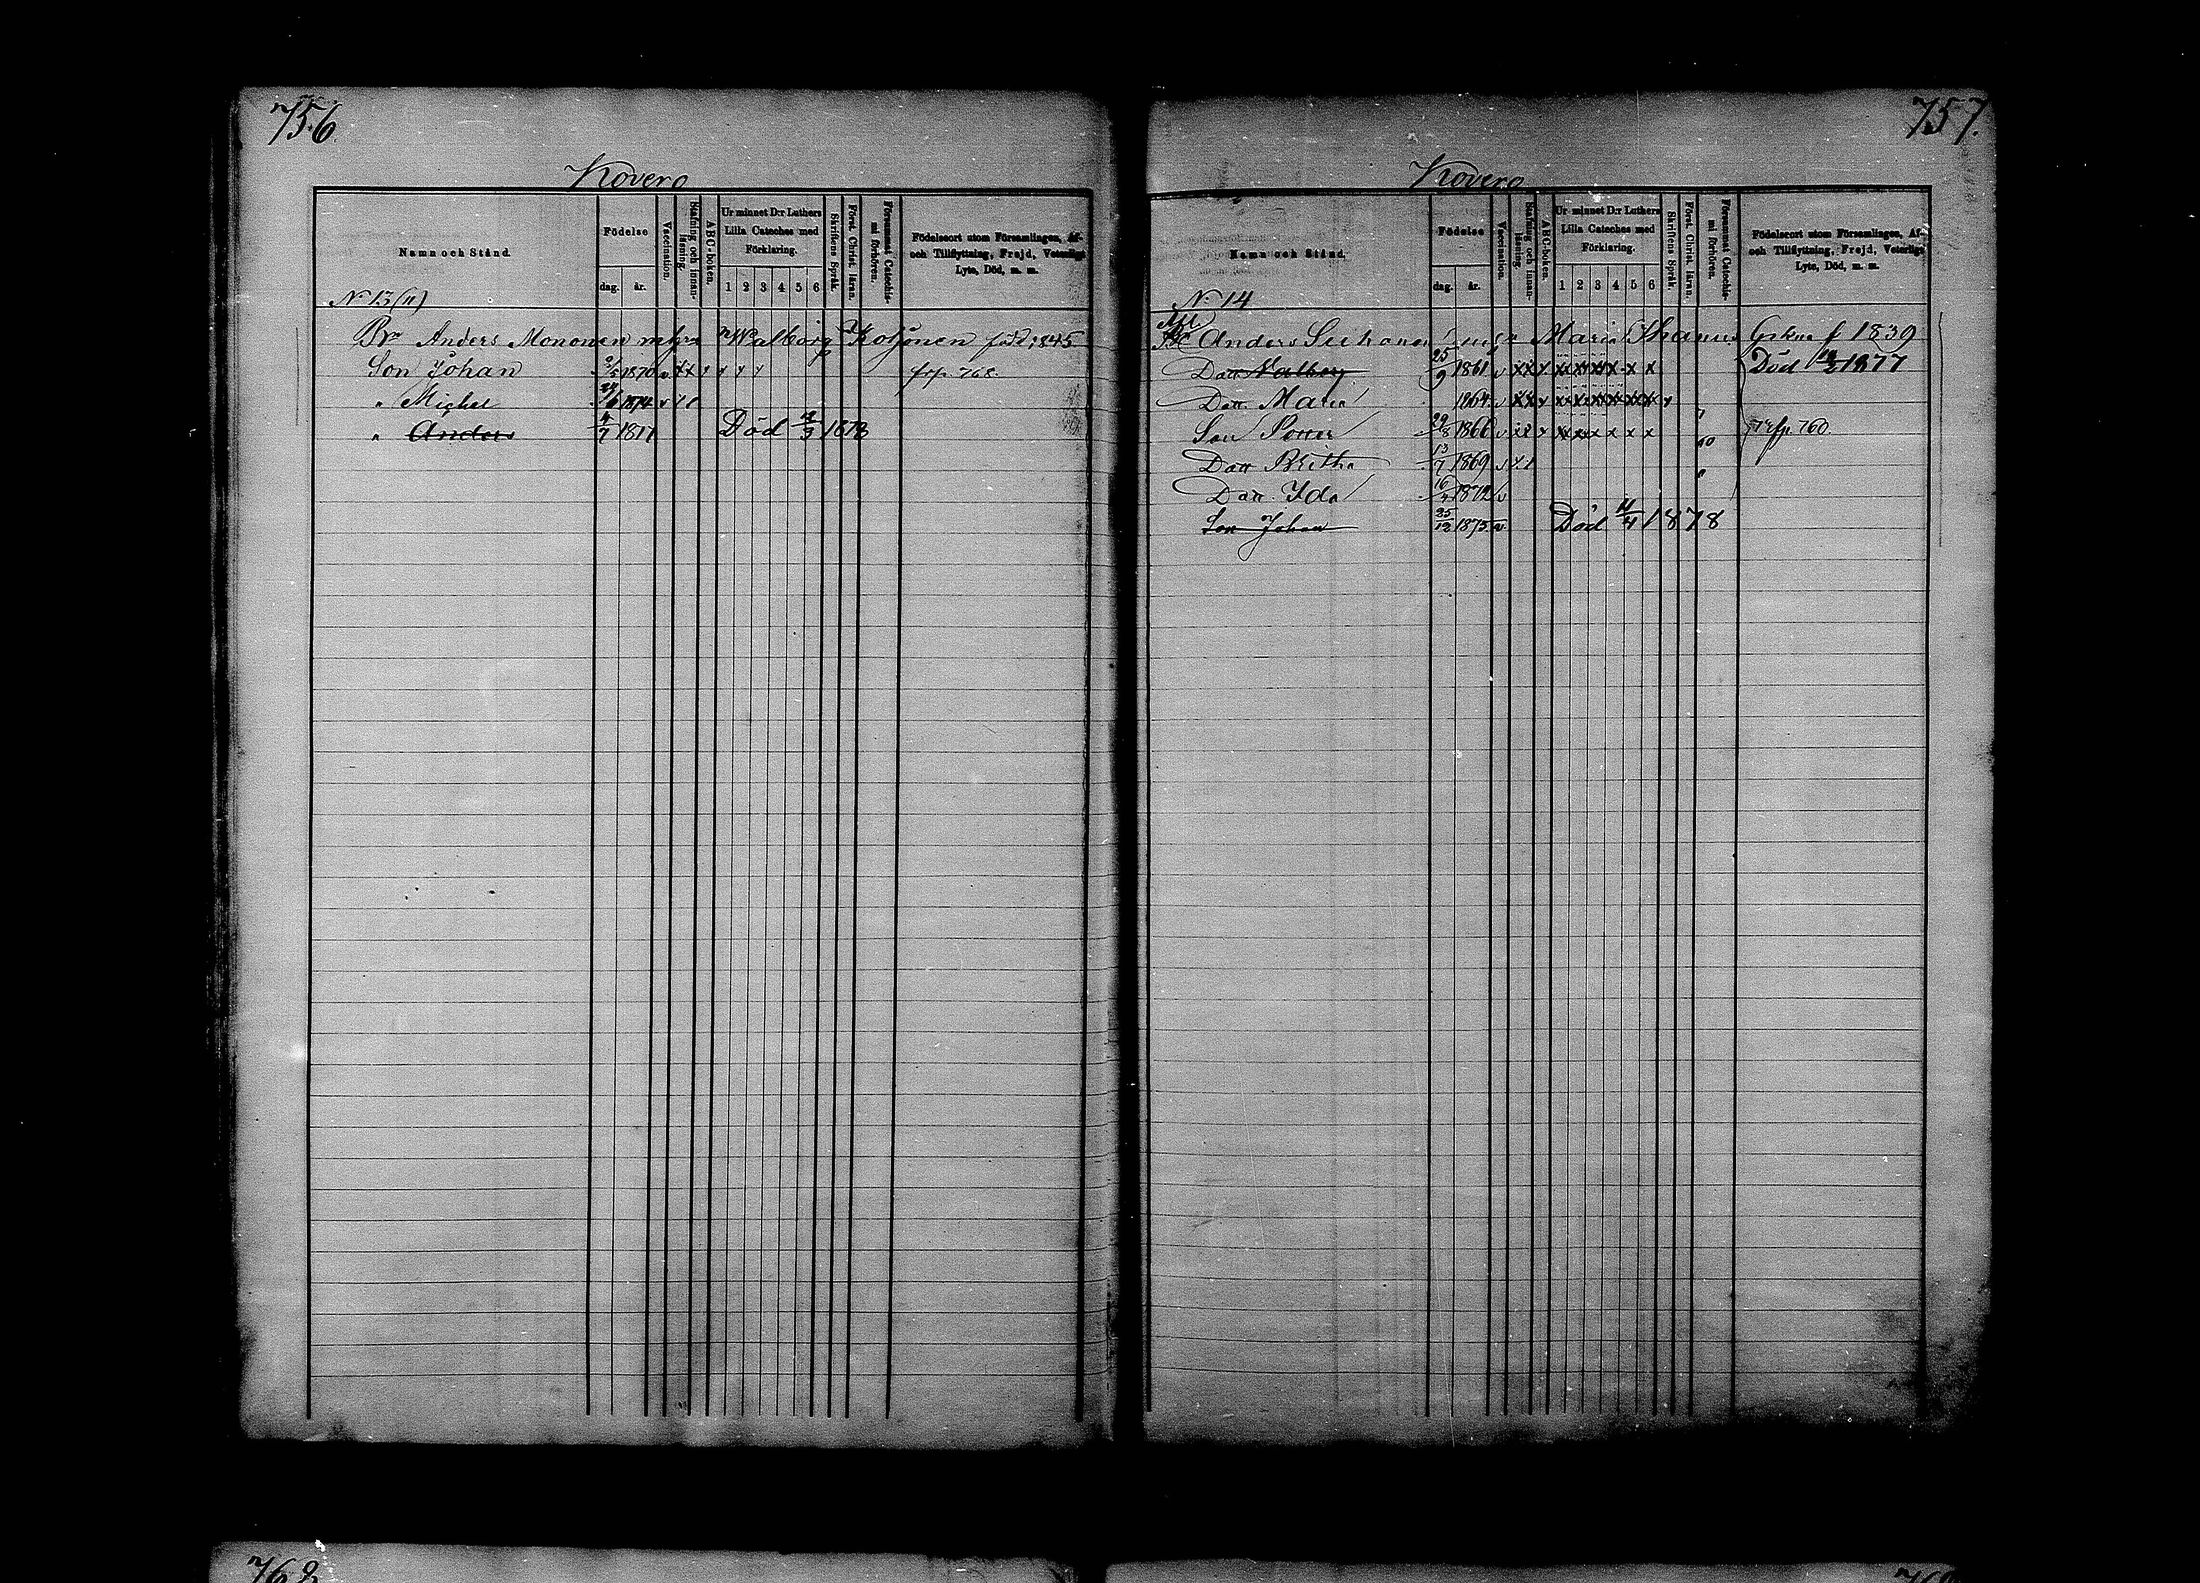 756
Kovero
Namn och Stånd.
Födelse
dag. år.
Vaccination.
Stafning och innan-
läsning.
ABC-boken.
Ur minnet D:r Luthers
Lilla Cateches med
Förklaring.
1 2 3 4 5 6
Skriftens Språk.
Först. Christ. läran.
Försummat Catechis-
mi förhören.
Födelseort utom Församlingen, Af-
och Tillflyttning, Frejd, Veterligt
Lyte, Död, m. m.
No 13
Anders Mononen Walborg Kotjonen född 1845
Son Johan 2/5 1870 v. 768.
" Michel 1874
" Anders 4/7 1877 Död 1878
757.
Kovero
Namn och Stånd.
Födelse
dag. år.
Vaccination.
Stafning och innan-
läsning.
ABC-boken.
Ur minnet D:r Luthers
Lilla Cateches med
Förklaring.
1 2 3 4 5 6
Skriftens Språk.
Först. Christ. läran.
Försummat Catechis-
mi förhören.
Födelseort utom Församlingen, Af-
och Tillflyttning, Frejd, Veterligt
Lyte, Död, m. m.
No 14
Anders Maria f 1839
Dott Walborg 25/9 1861 v x x x x x x Död 1877
Dott. Maria 1864 v
Son Petter 29/8 1866 v 760.
Dott Britha 13/7 1869 v
Dott Ida 1872 v
Son Johan 25/12 1875 v Död 11/4 1878
762